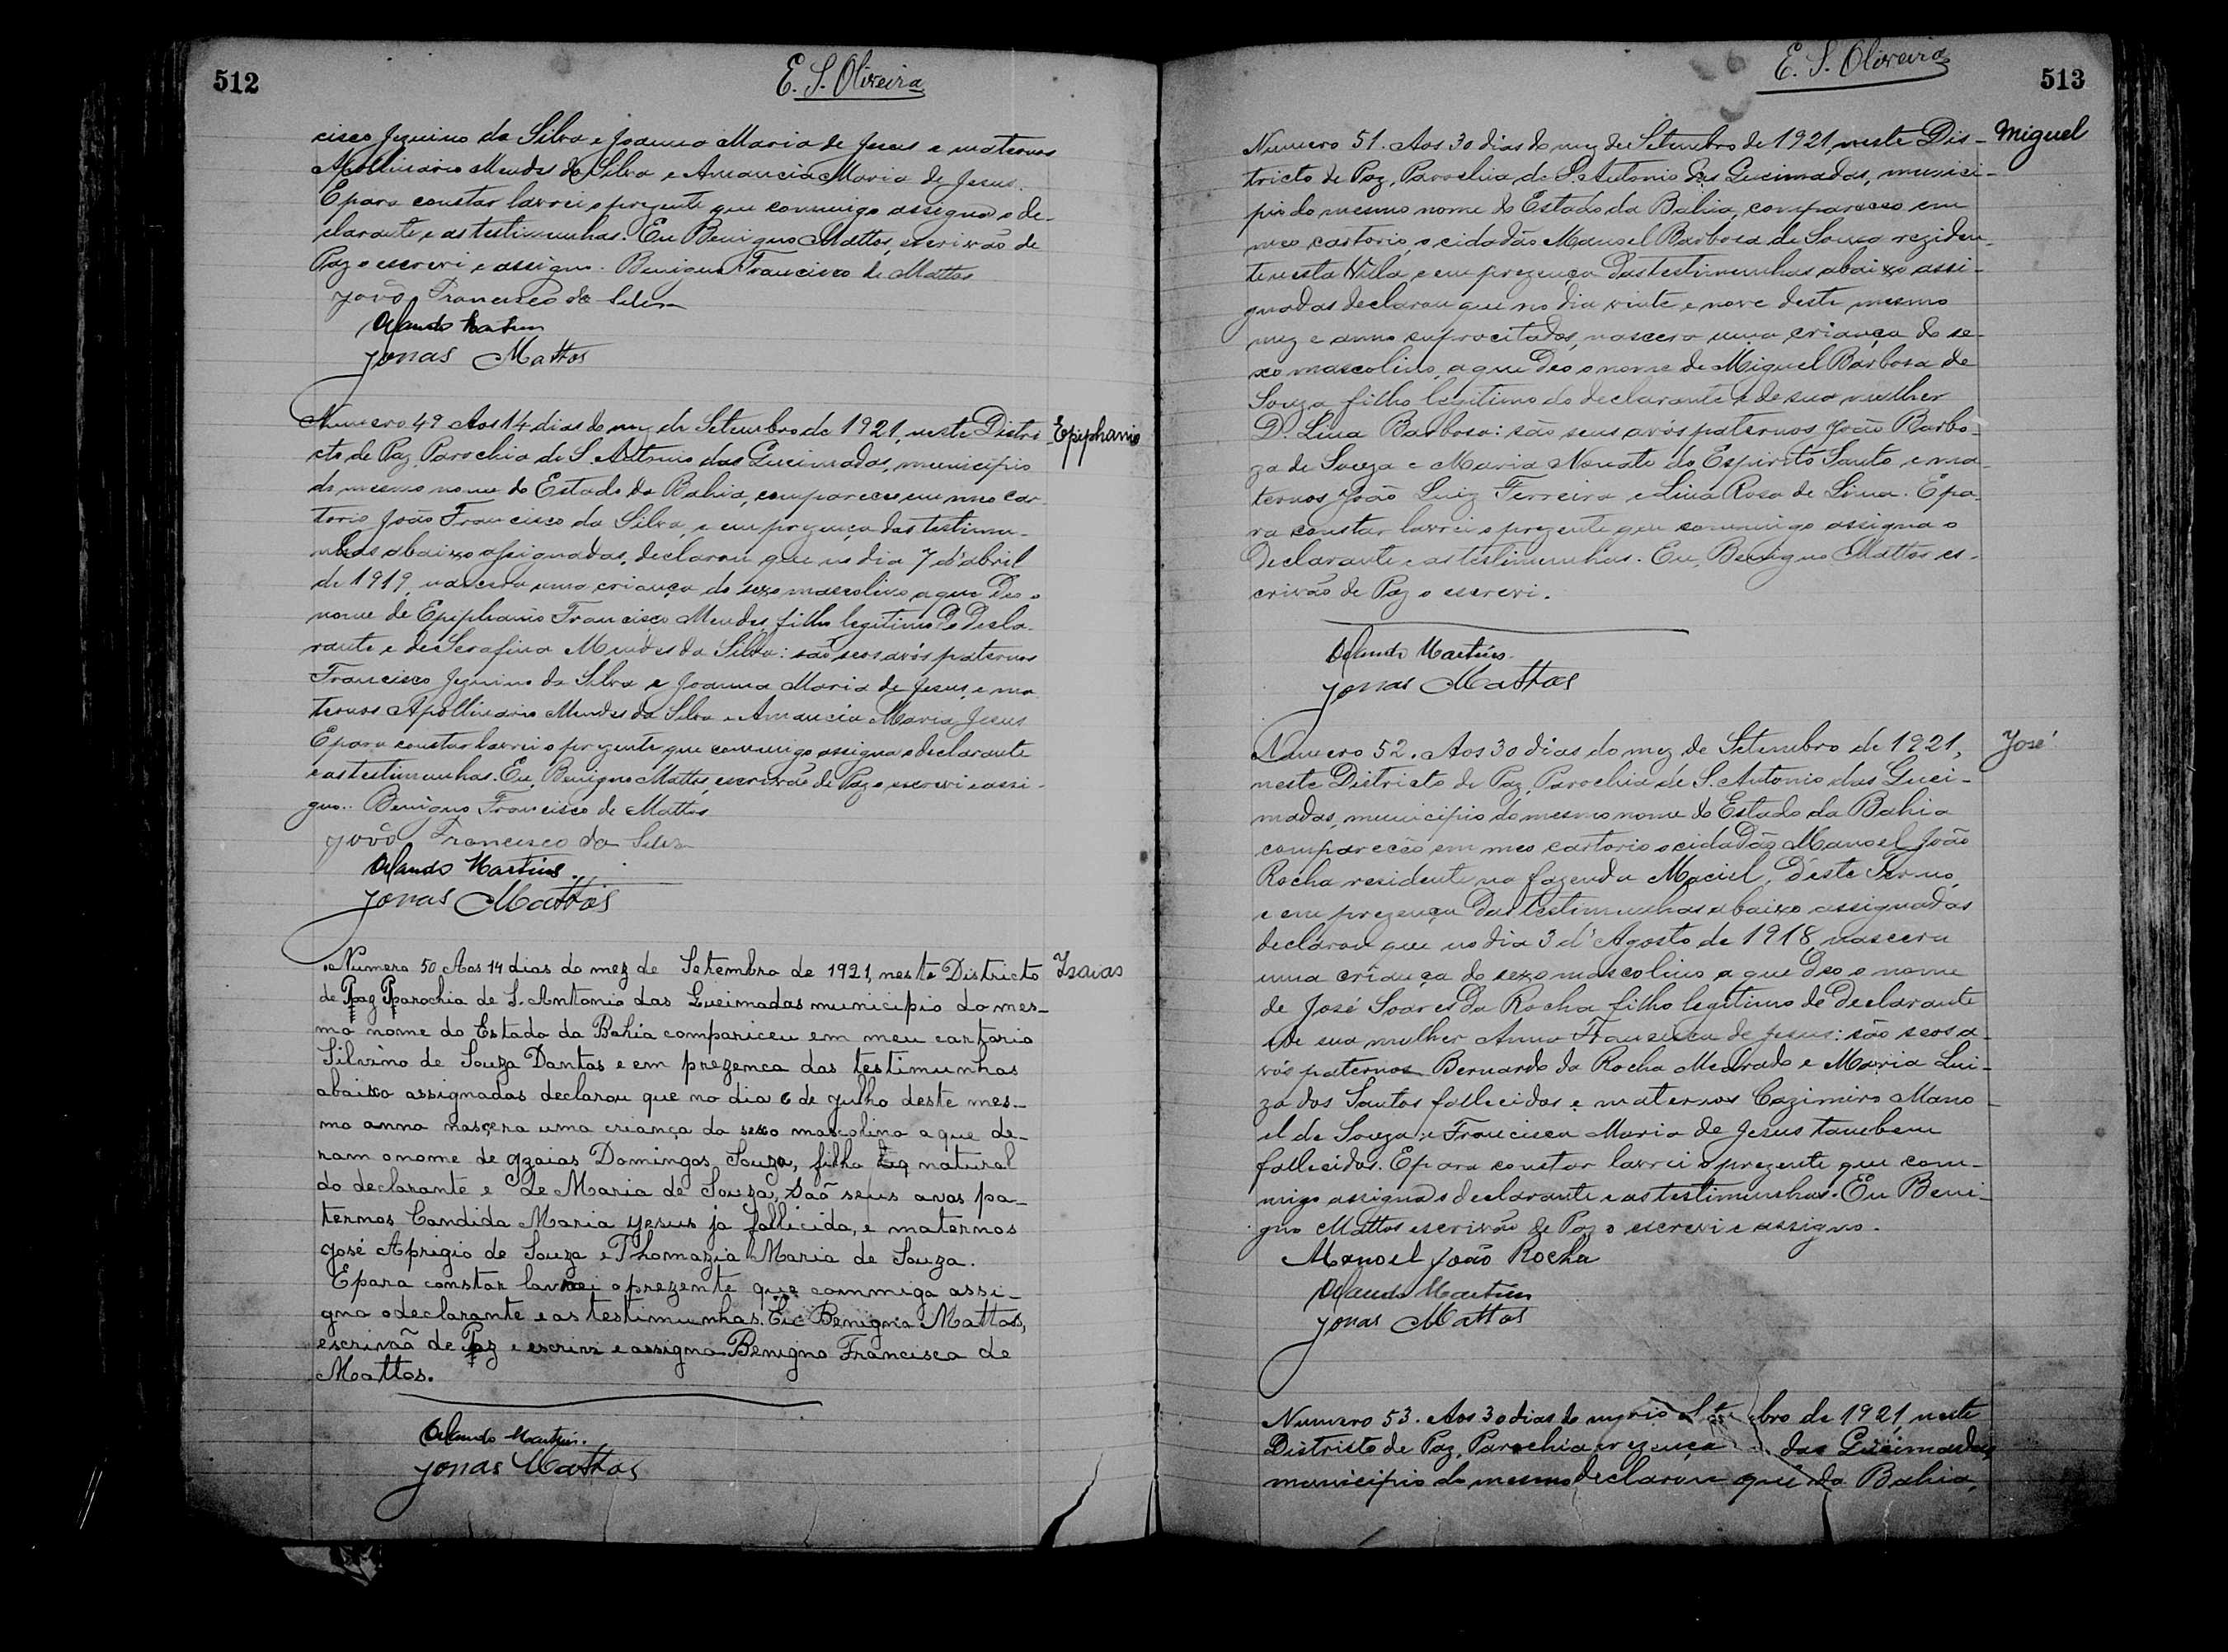 512
E. S. Oliveira
cisco Jezuino da Silva e Joanna Maria de Jesus e maternos
Apollinario Mendes da Silva e Amancia Maria de Jesus.
E para constar lavrei o prezente que commigo assigna o de-
clarante e as testimunhas. Eu Benigno Mattos, escrivão de
Paz o escrevi e assigno. Benigno Francisco de Mattos
João Francisco da Silva
Orlando Martins
Jonas Mattos
Numero 49 Aos 14 dias do mez de Setembro de 1921, neste Distri
cto de Paz, Parochia de S. Antonio das Queimadas, municipio
do mesmo nome do Estado da Bahia, compareceu em meo car-
torio João Francisco da Silva, e em prezença das testimu-
nhas abaixo assignadas, declarou que no dia 7 d'abril
de 1919, nascera uma criança do sexo mascolino a que Deo o
nome de Epiphanio Francisco Mendes, filho legitimo do Decla-
rante e de Serafina Mendes da Silva: são seos avós paternos
Francisco Jezuino da Silva e Joanna Maria de Jesus, e ma
ternos Apollinario Mendes da Silva e Amancia Maria Jesus
E para constar lavrei o prezente que commigo assigna o declarante
e as testimunhas. Eu, Benigno Mattos, escrivão de Paz o escrevi e assi-
gno. Benigno Francisco de Mattos
João Francisco da Silva
Orlando Martins.
Jonas Mattos
Epiphanio
Numero 50 Aos 14 dias do mez de Setembro de 1921, neste Districto
de Paz Parochia de S. Antonio das Queimadas municipio do mes-
mo nome do Estado da Bahia compariceu em meu cartorio
Silvino de Souza Dantas e em prezenca das testimunhas
abaixo assignadas declarou que no dia 6 de Julho deste mes-
mo anno nasçera uma criança do sexo mascolino a que de-
ram o nome de Izaias Domingos Souza, filho leg natural
do declarante e de Maria de Souza, Saõ seus avos pa-
ternos Candida Maria Jesus ja fallicida, e maternos
José Aprigio de Souza e Thomazia Maria de Souza.
E para constar lavrei o prezente que commigo assi-
gna o declarante e as testimunhas. Eu Benigno Mattos,
escrivaõ de Paz e escrivi e assigno Benigno Francisco de
Mattos.
Orlando Martins.
Jonas Mattos
Izaias
513
E. S. Oliveira
Numero 51. Aos 30 dias do mez de Setembro de 1921, neste Dis-
tricto de Paz, Parochia de S. Antonio das Queimadas, munici-
pio do mesmo nome do Estado da Bahia, compareceo em
meo cartorio, o cidadão Manoel Barbosa de Souza rezidен-
te nesta Villa, e em prezença das testimunhas abaixo assi-
gnadas declarou que no dia vinte e nove deste mesmo
mez e anno suprocitados, nascera uma criança do se-
xo mascolino, a que Deo o nome de Miguel Barbosa de
Souza filho legitimo do declarante e de sua mulher
D. Lina Barbosa: são seus avós paternos João Barbo-
za de Souza e Maria Nonato do Espirito Santo, e ma-
ternos João Luiz Ferreira e Lina Rosa de Lima. E pa-
ra constar lavrei o prezente que commigo assigna o
Declarante e as testimunhas. Eu, Benigno Mattos es-
crivão de Paz o escrevi.
Orlando Martins.
Jonas Mattos
Miguel
Numero 52. Aos 30 dias do mez de Setembro de 1921,
neste Districto de Paz, Parochia de S. Antonio das Quei-
madas, municipio do mesmo nome do Estado da Bahia
compareceo em meo cartorio o cidadão Manoel João
Rocha residente na fazenda Maciel, D'este Termo,
e em prezença das testimunhas abaixo assignadas
declarou que no dia 3 d'Agosto de 1918, nascera
uma criança do sexo mascolino a que Deo o nome
de José Soares da Rocha filho legitimo do Declarante
e de sua mulher Anna Francisca de Jesus: são seos a-
vós paternos Bernardo da Rocha Medrado e Maria Lui-
za dos Santos fallecidos e maternos Cazimiro Mano-
el de Souza e Francisca Maria de Jesus tambem
fallecidos. E para constar lavrei o prezente que com-
migo assigna o declarante e as testimunhas. Eu Beni-
gno Mattos escrivão de Paz o escrevi e assigno.
Manoel João Rocha
Orlando Martins
Jonas Mattos
José
Numero 53. Aos 30 dias do ebro de 1921 neste
Districto de Paz, Parochia das Queimadas,
municipio do mesmo declarou que da Bahia,